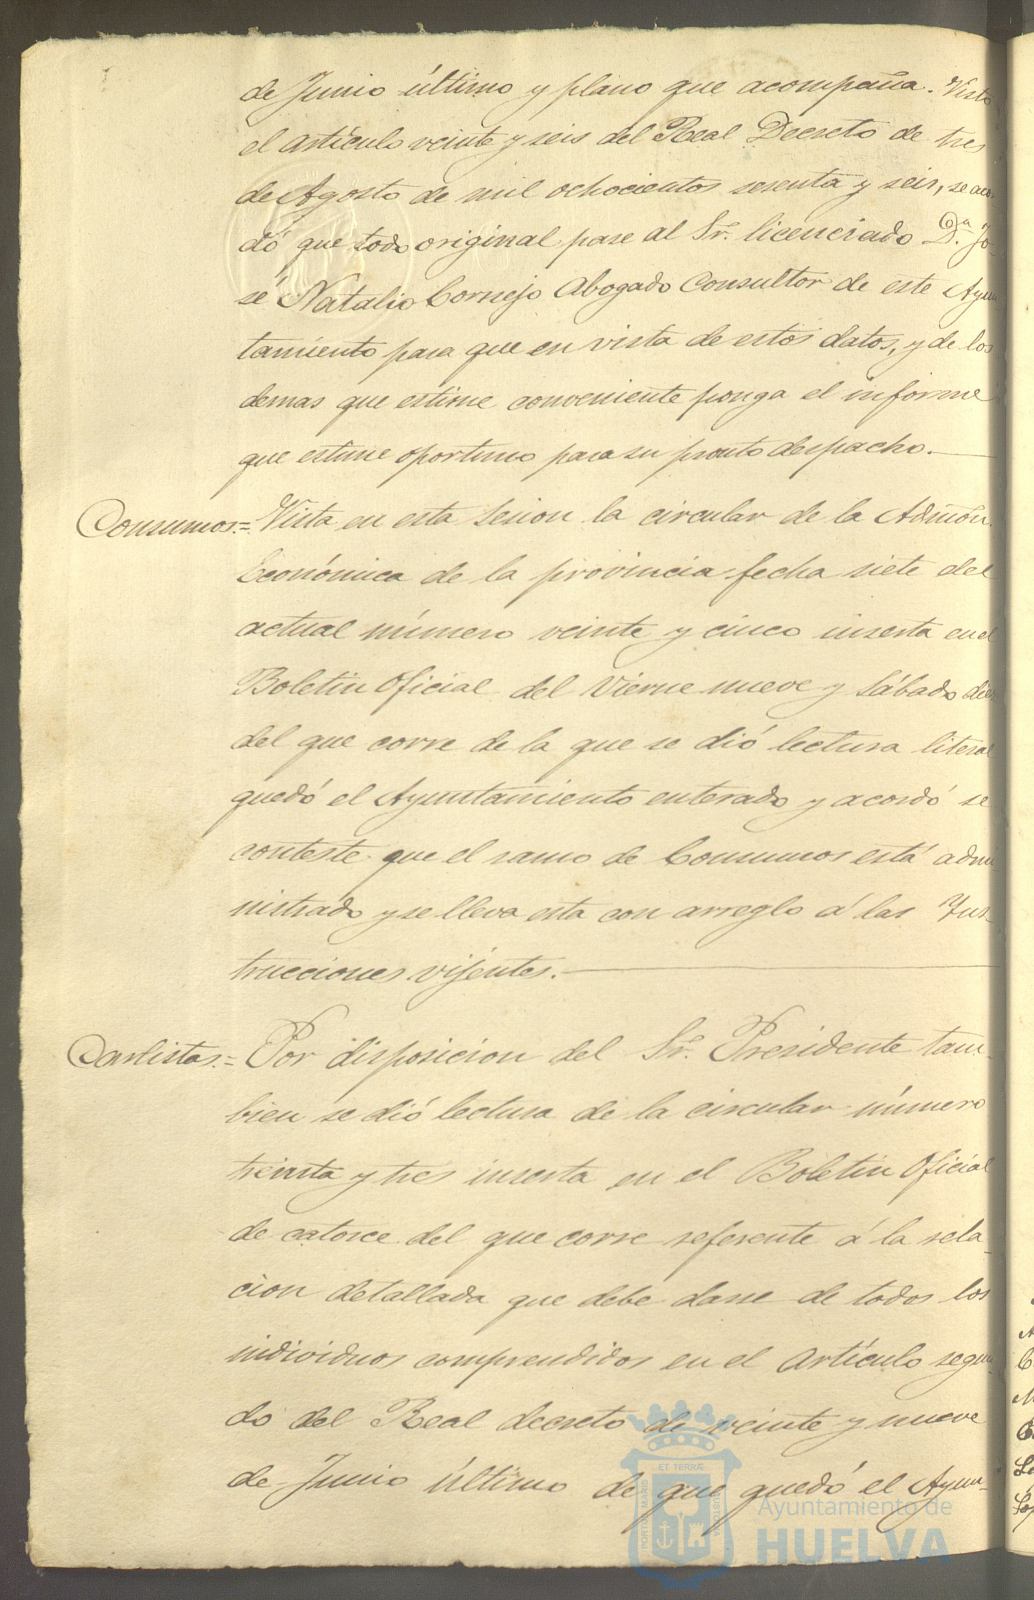 de Junio último y plano que acompaña. Visto
el artículo veinte y seis del Real Decreto de tres
de Agosto de mil ochocientos sesenta y seis, se acor-
dó que todo original pase al Sr. licenciado D.ⁿ Jo-
sé Natalio Cornejo Abogado Consultor de este Ayun
tamiento para que en vista de estos datos, y de los
demas que estime conveniente ponga el informe
que estime oportuno para su pronto despacho.
Consumos.= Vista en esta sesion la circular de la Admón.
Económica de la provincia fecha siete del
actual número veinte y cinco inserta en el
Boletin Oficial del Vierne nueve y Sábado diez
del que corre de la que se dió lectura literal
quedó el Ayuntamiento enterado y acordó se
conteste que el ramo de Consumos está admi
nistrado y se lleva esta con arreglo á las Yns-
trucciones vijentes.
Carlistas.= Por disposicion del Sr. Presidente tam-
bien se dió lectura de la circular número
treinta y tres inserta en el Boletin Oficial
de catorce del que corre referente á la rela-
cion detallada que debe darse de todos los
individuos comprendidos en el artículo segun
do del Real decreto de veinte y nueve
de Junio último de que quedó el Ayun-
ET TERRÆ
PORTUS MARIS
CUSTODIA
Ayuntamiento de
HUELVA